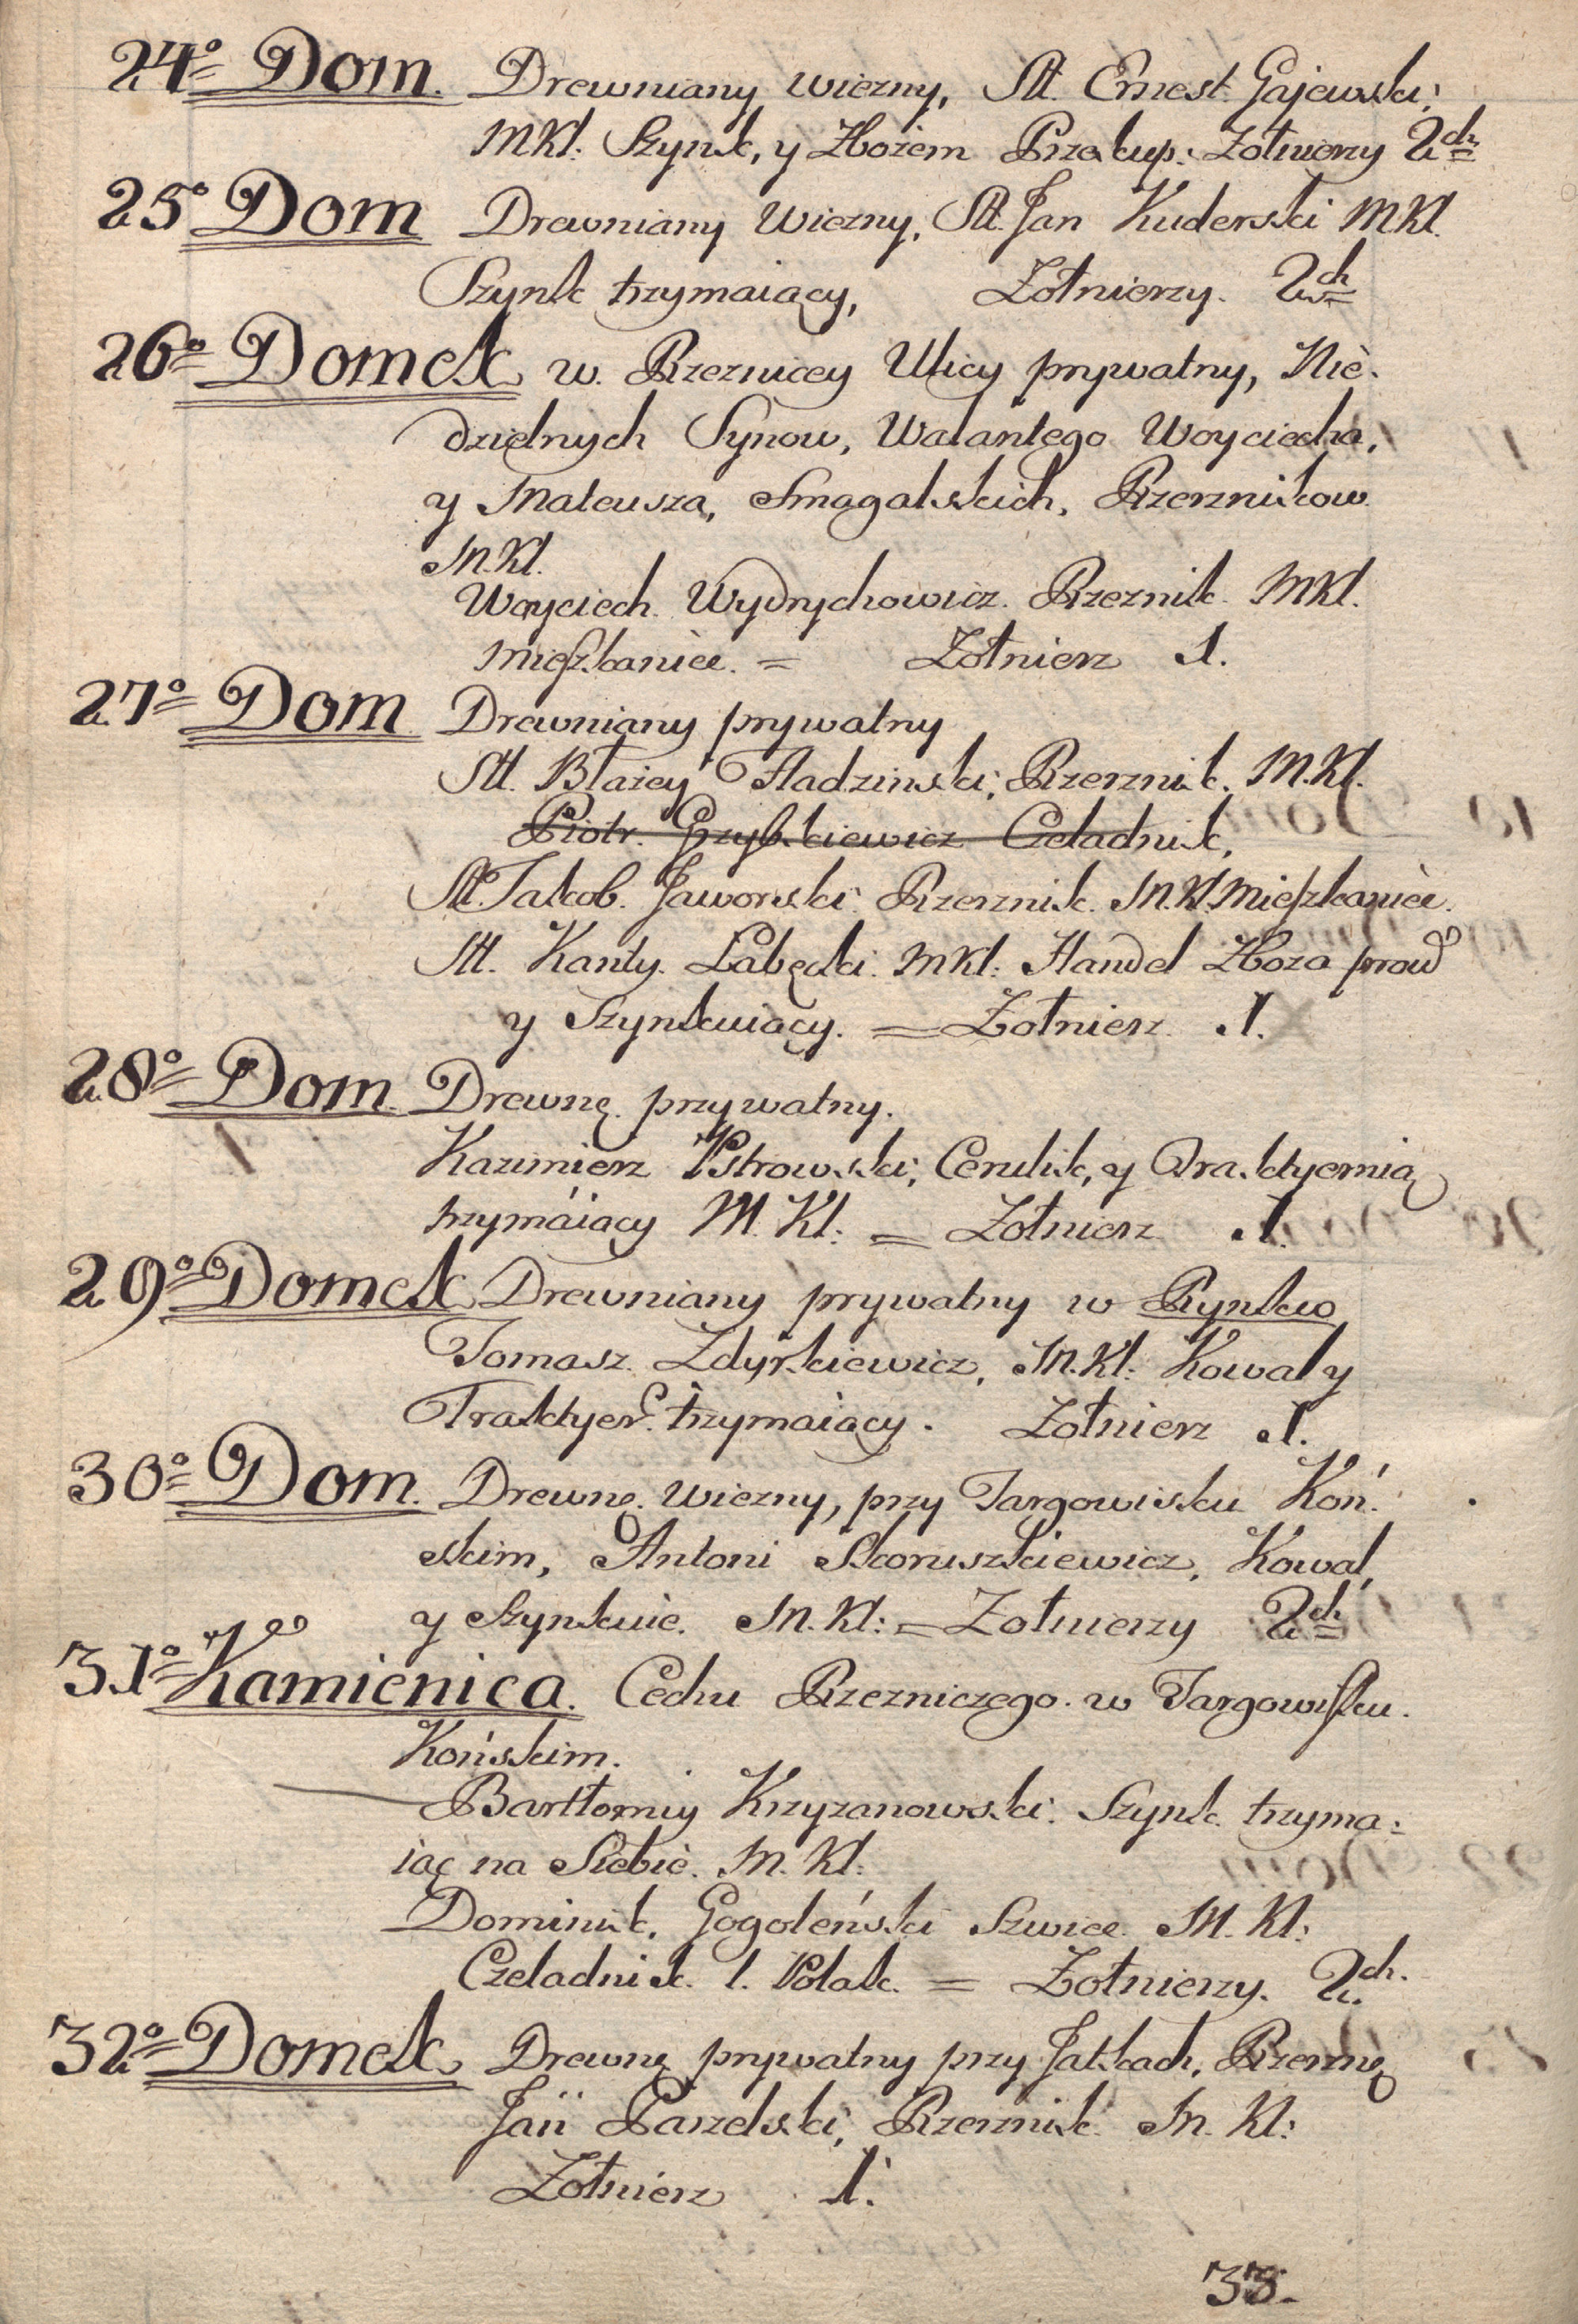 24o Dom. Drewniany wiezny, Stt. Ernest Gajewski;
MKl: Szynk, y Zbożem Przekup: Zołnierzy 2ch
25o Dom Drewniany Wiezny, Stt. Jan Kuderski MKl.
Szynk trzymaiący, Zołnierzy. 2ch
26o Domek w. Rzeznicey Ulicy prywatny, Nie-
dzielnych Synow, Walantego Woyciecha,
y Mateusza, Smagalskich, Rzeznikow
M.Kl.
Woyciech Wydrychowicz. Rzeznik. MKl.
mieszkanice. = Zołnierz 1.
27o Dom Drewniany prywatny
Stt. Błażey Fladzinski; Rzerznik. M.Kl.
Piotr. Grzybkiewicz Czeladnik,
Stt. Jakob. Jaworski. Rzerznik. M.Kl. Mieszkanice.
Stt. Kanty. Łabęcki. MKl: Handel Zboza prowd
y Szynkuiący. = Zołnierz 1.
28o Dom. Drewnę. przywatny.
Kazimierz Pstrowski; Cerulik, y Traktyernią
trzymáiący M. Kl: = Zołnierz 1.
29o Domek Drewniany prywatny w Rynku
Tomasz Zdyrkiewicz, M.Kl: Kowal y
Traktyer. trzymaiący. Zołnierz 1.
30o Dom. Drewnę. wiezny, przy Targowisku Koń:
skim, Antoni Skoruszkiewicz, Kowal,
y Szynkuie. M.Kl: = Zołnierzy 2ch
31o Kamienica. Cechu Rzezniczego. w Targowisku.
Końskim.
Bartłomiy Krzyzanowski. Szynk. trzyma:
iąc na Siebie. M. Kl:
Dominik. Gogoleński Szwiec M. Kl:
Czeladnik. 1. Polak. = Zołnierzy. 2.ch.
32o Domek Drewnę prywatny przy Jatkach, Rzeznę
Jan Parzelski, Rzerznik. M. Kl:
Zołnierz 1.
33.